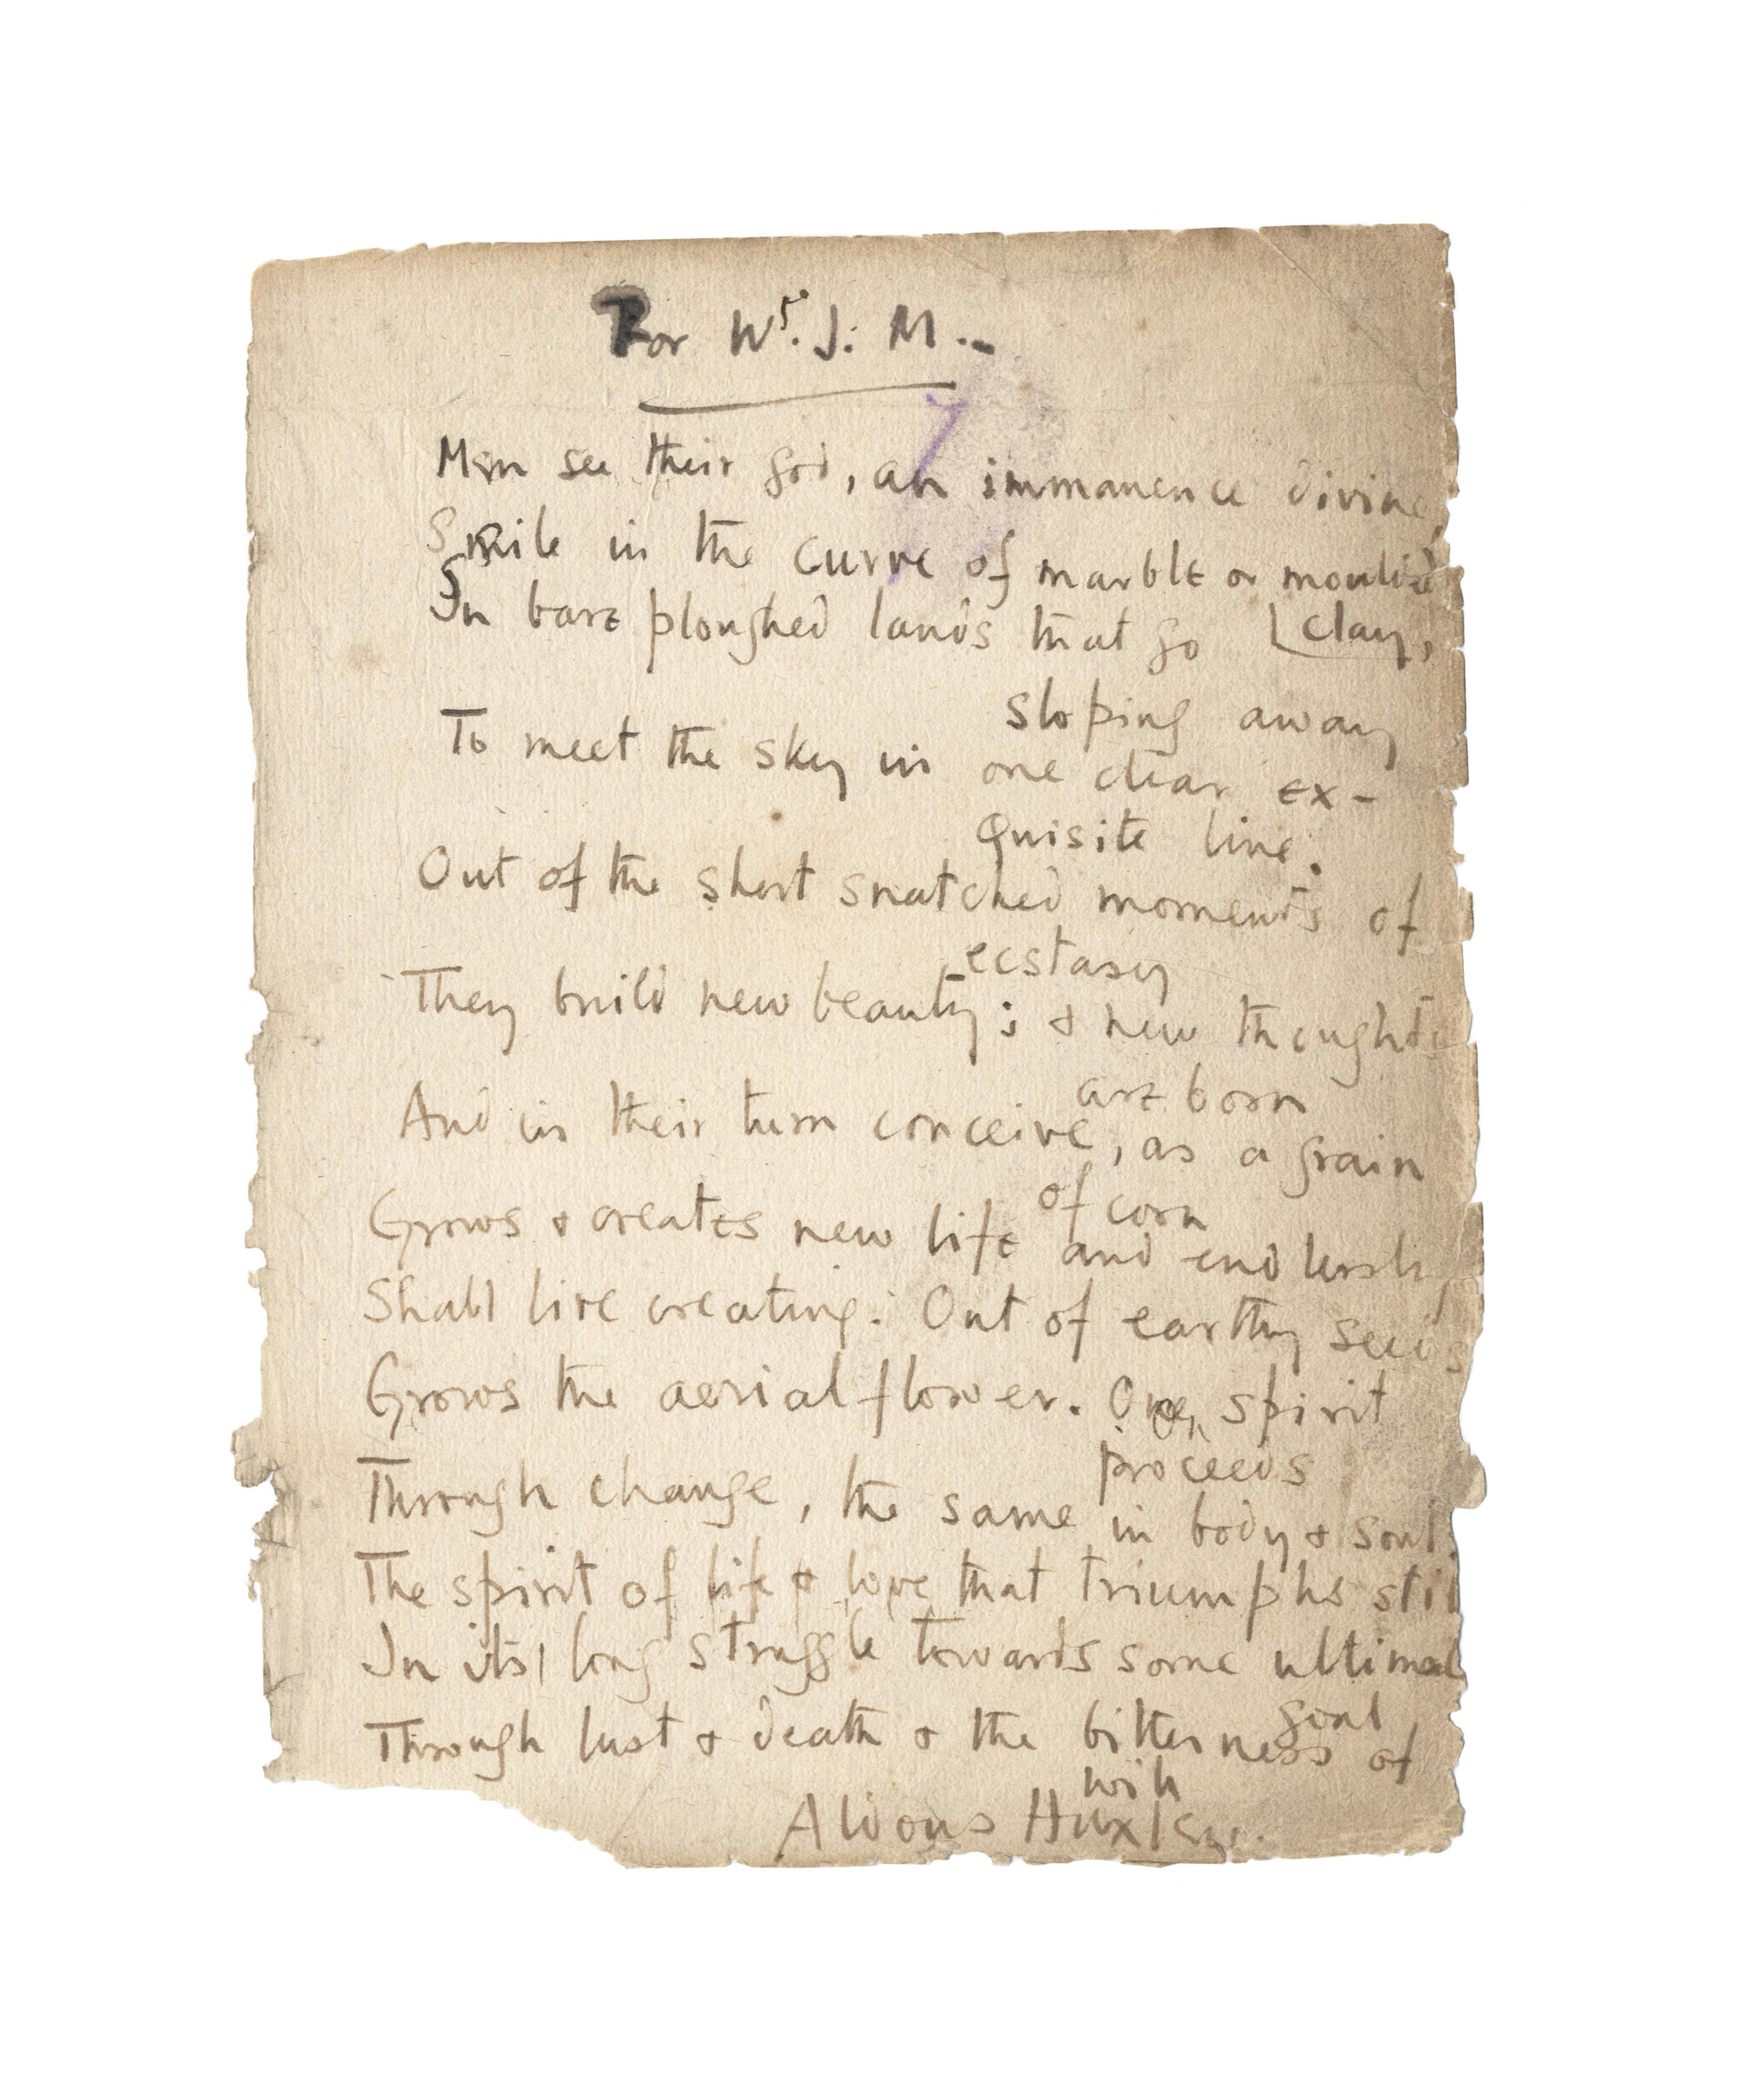 For W. J. M.
Men see their god, an immanence divine,
Smile in the curve of marble or moulded
clay,
In bare ploughed lands that go
sloping away
To meet the sky in one clear ex-
quisite line.
Out of the short snatched moments of
ecstasy
They build new beauty; & new thoughts
are born
And in their turn conceive, as a grain
of corn
Grows & creates new life and endlessly
Shall live creating. Out of earthy seeds
Grows the aerial flower. One spirit
proceeds
Through change, the same in body & soul.
The spirit of life & love that triumphs still
In its long struggle towards some ultimate
goal
Through lust & death & the bitterness of
will
Aldous Huxley.